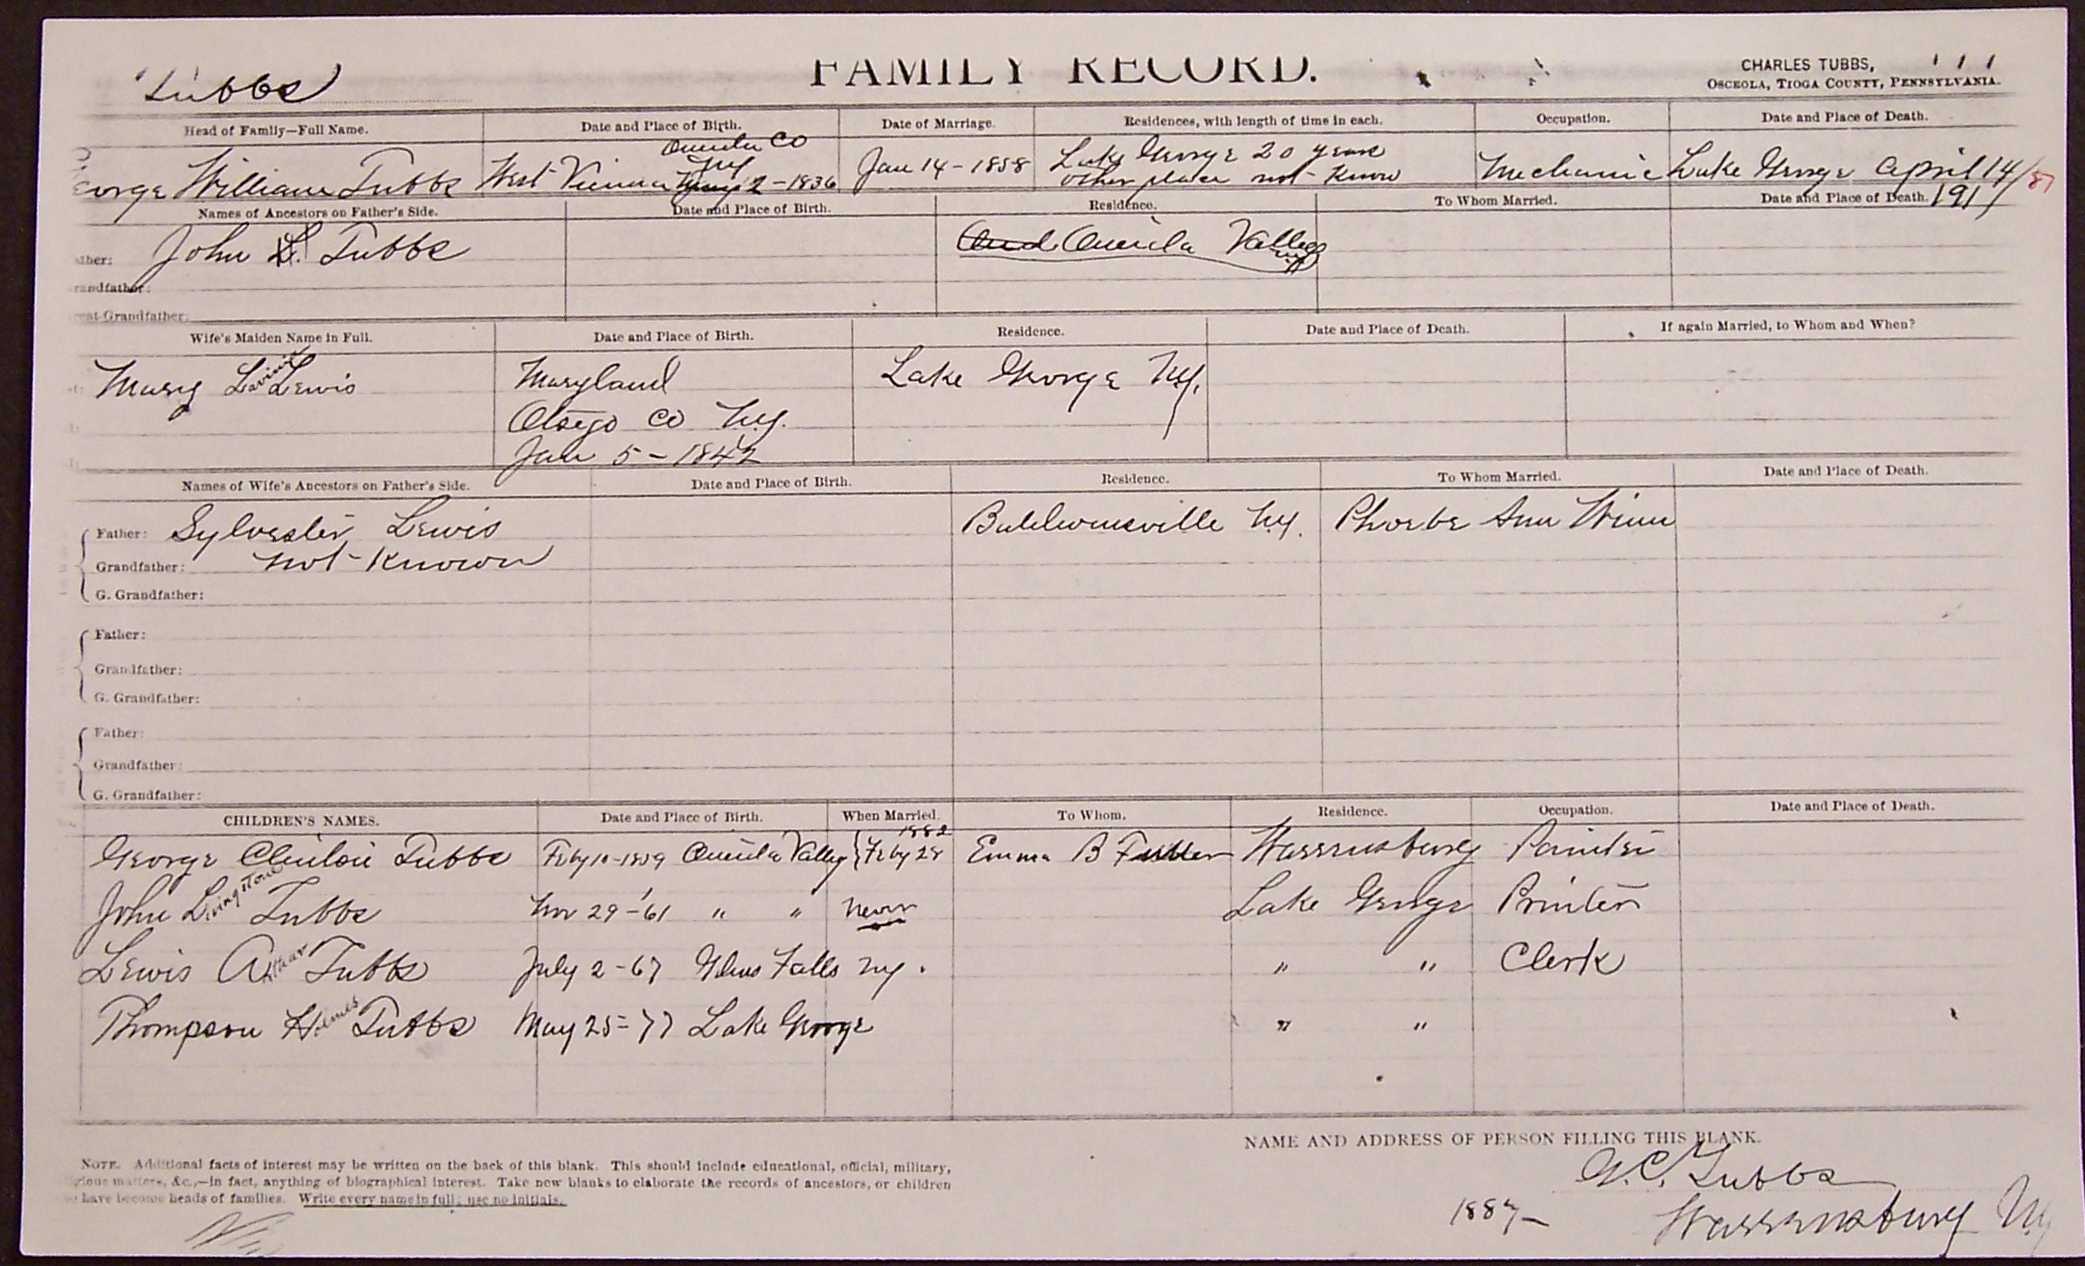 Tubbs
FAMILY RECORD.
CHARLES TUBBS,
OSCEOLA, TIOGA COUNTY, PENNSYLVANIA.
Head of Family—Full Name. Date and Place of Birth. Date of Marriage. Residences, with length of time in each. Occupation. Date and Place of Death.
Oneida Co
NY
eorge William Tubbs West Vienna 2-1836 Jan 14-1858 Lake George 20 years Mechanic Lake George April 14/87
other place not know
191
Names of Ancestors on Father's Side. Date and Place of Birth. Residence. To Whom Married. Date and Place of Death.
ther: John L. Tubbs Oneida Valley NY
randfather:
eat-Grandfather:
Wife's Maiden Name in Full. Date and Place of Birth. Residence. Date and Place of Death. If again Married, to Whom and When?
Mary Lavinia Lewis Maryland Lake George N.Y.
Otsego Co N.Y.
Jan 5-1842
Names of Wife's Ancestors on Father's Side. Date and Place of Birth. Residence. To Whom Married. Date and Place of Death.
Father: Sylvester Lewis Baldwinsville N.Y. Phoebe Ann Winn
Grandfather: not-Known
G. Grandfather:
Father:
Grandfather:
G. Grandfather:
Father:
Grandfather:
G. Grandfather:
CHILDREN'S NAMES. Date and Place of Birth. When Married. To Whom. Residence. Occupation. Date and Place of Death.
1882
George Clinton Tubbs Feby 10-1859 Oneida Valley Feby 28 Emma B Fuller Warrensburg Painter
John Livingstone Tubbs Nov 29-'61 " " Never Lake George Printer
Lewis Arthur Tubbs July 2-67 Glens Falls NY. " " Clerk
Thompson Holmes Tubbs May 25-77 Lake George " "
NAME AND ADDRESS OF PERSON FILLING THIS BLANK.
NOTE. Additional facts of interest may be written on the back of this blank. This should include educational, official, military,
gious matters, &c.,—in fact, anything of biographical interest. Take new blanks to elaborate the records of ancestors, or children
have become heads of families. Write every name in full; use no initials.
G.C. Tubbs
1887- Warrensburg NY